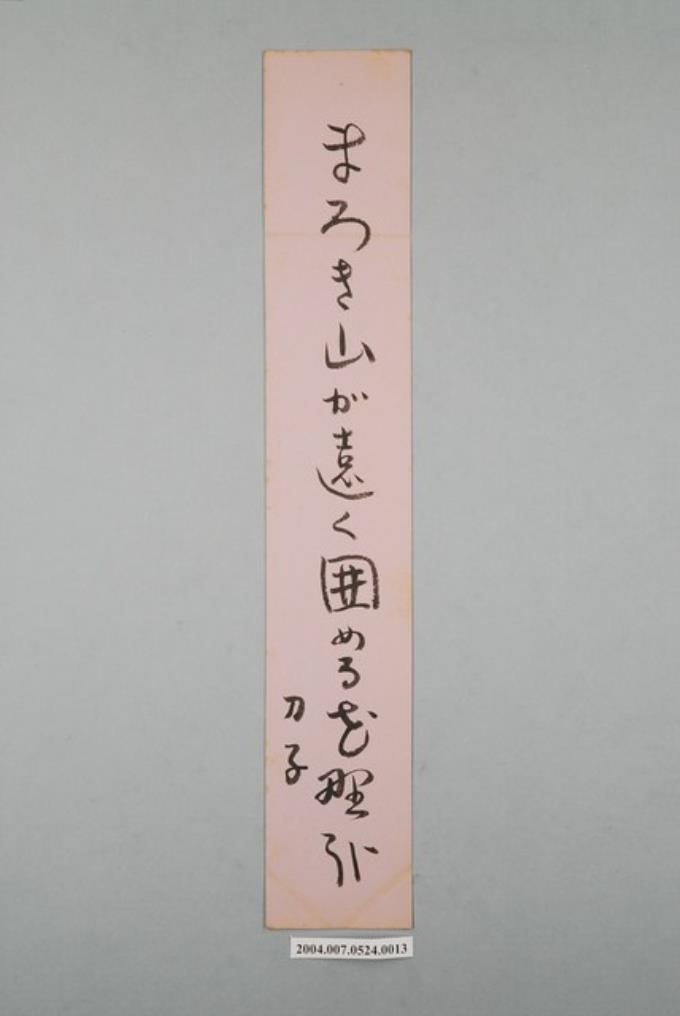 まろき山が遠く囲める花野
刀子
2004.007.0524.0013